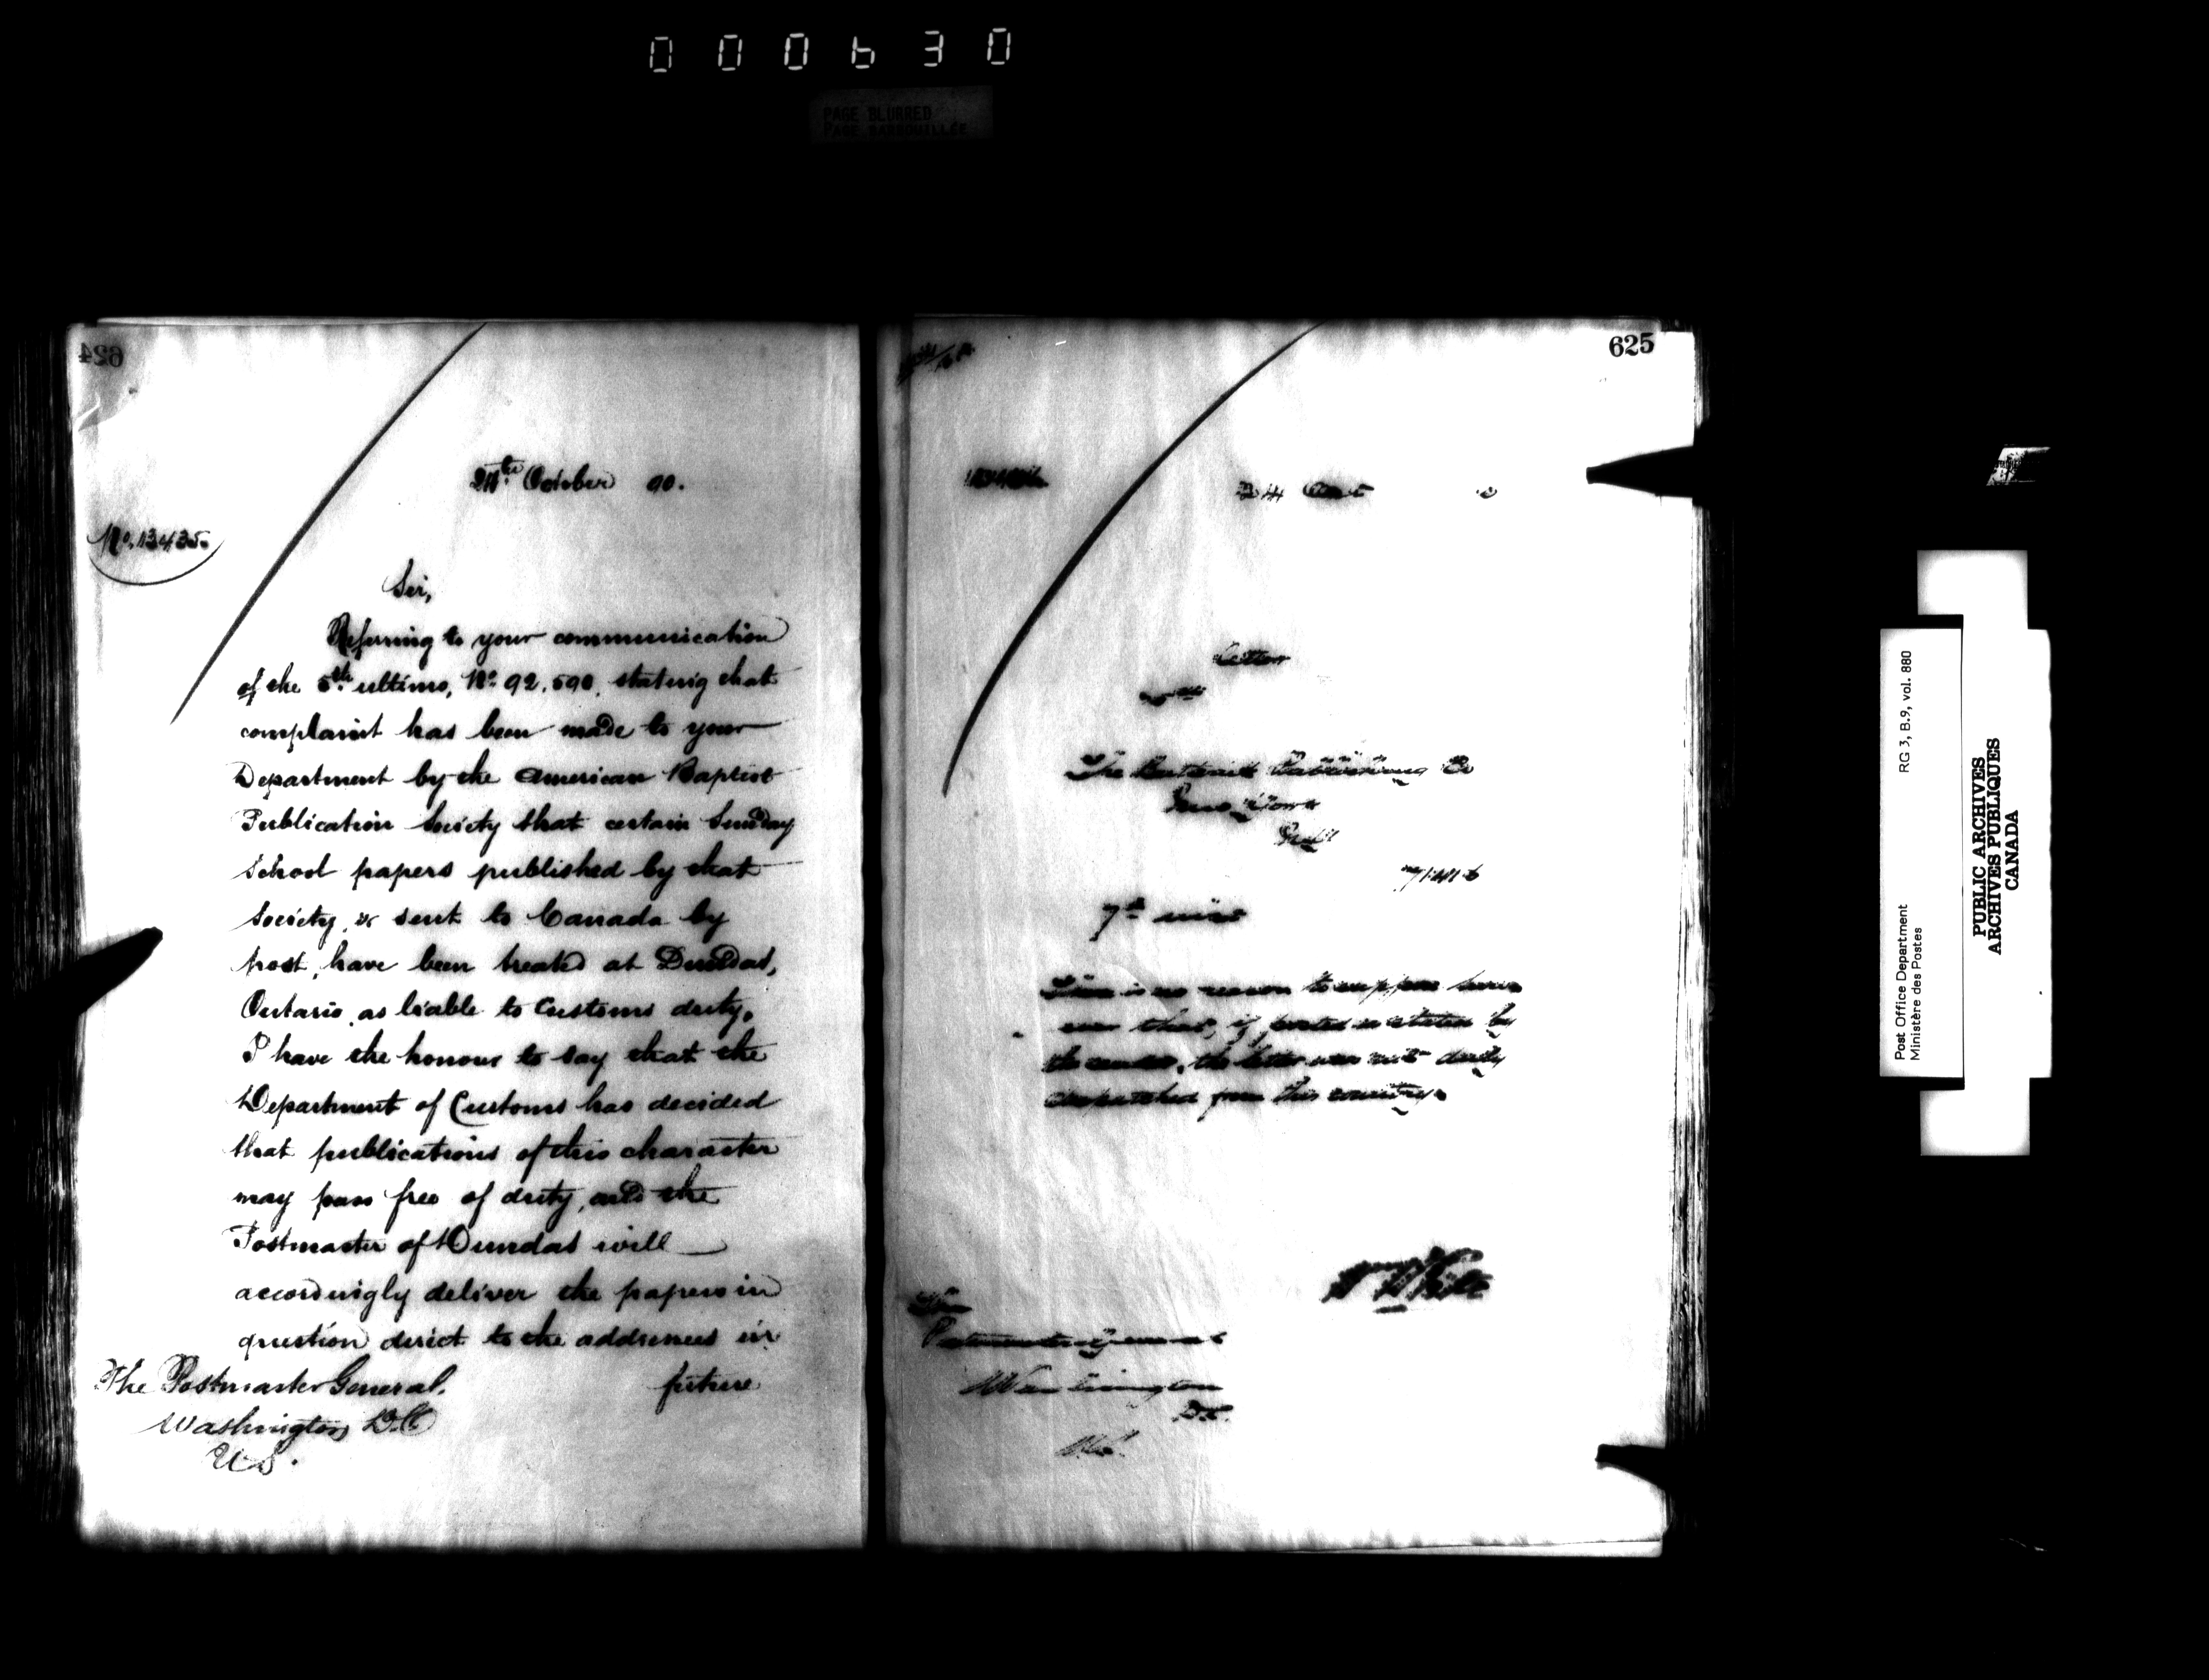 000630
PAGE BLURRED
PAGE BARBOUILLÉE
624
24th October 90.
No. 13435.
Sir,
Referring to your communication
of the 5th ultimo, No. 92.590, stating that
complaint has been made to your
Department by the American Baptist
Publication Society that certain Sunday
School papers published by that
Society, & sent to Canada by
post, have been treated at Dundas,
Ontario, as liable to Customs duty,
I have the honour to say that the
Department of Customs has decided
that publications of this character
may pass free of duty, and the
Postmaster of Dundas will
accordingly deliver the papers in
question direct to the addresses in
future
The Postmaster General,
Washington D.C.
U.S.
625
24 Oct
letter
The Publishing Co
New York
7th inst
There is no reason to suppose
that, if posted as stated by
the sender, the letter was not duly
despatched from this country.
W White
The
Postmaster General
Washington
D.C.
U.S.
Post Office Department RG 3, B.9, vol. 880
Ministère des Postes
PUBLIC ARCHIVES
ARCHIVES PUBLIQUES
CANADA